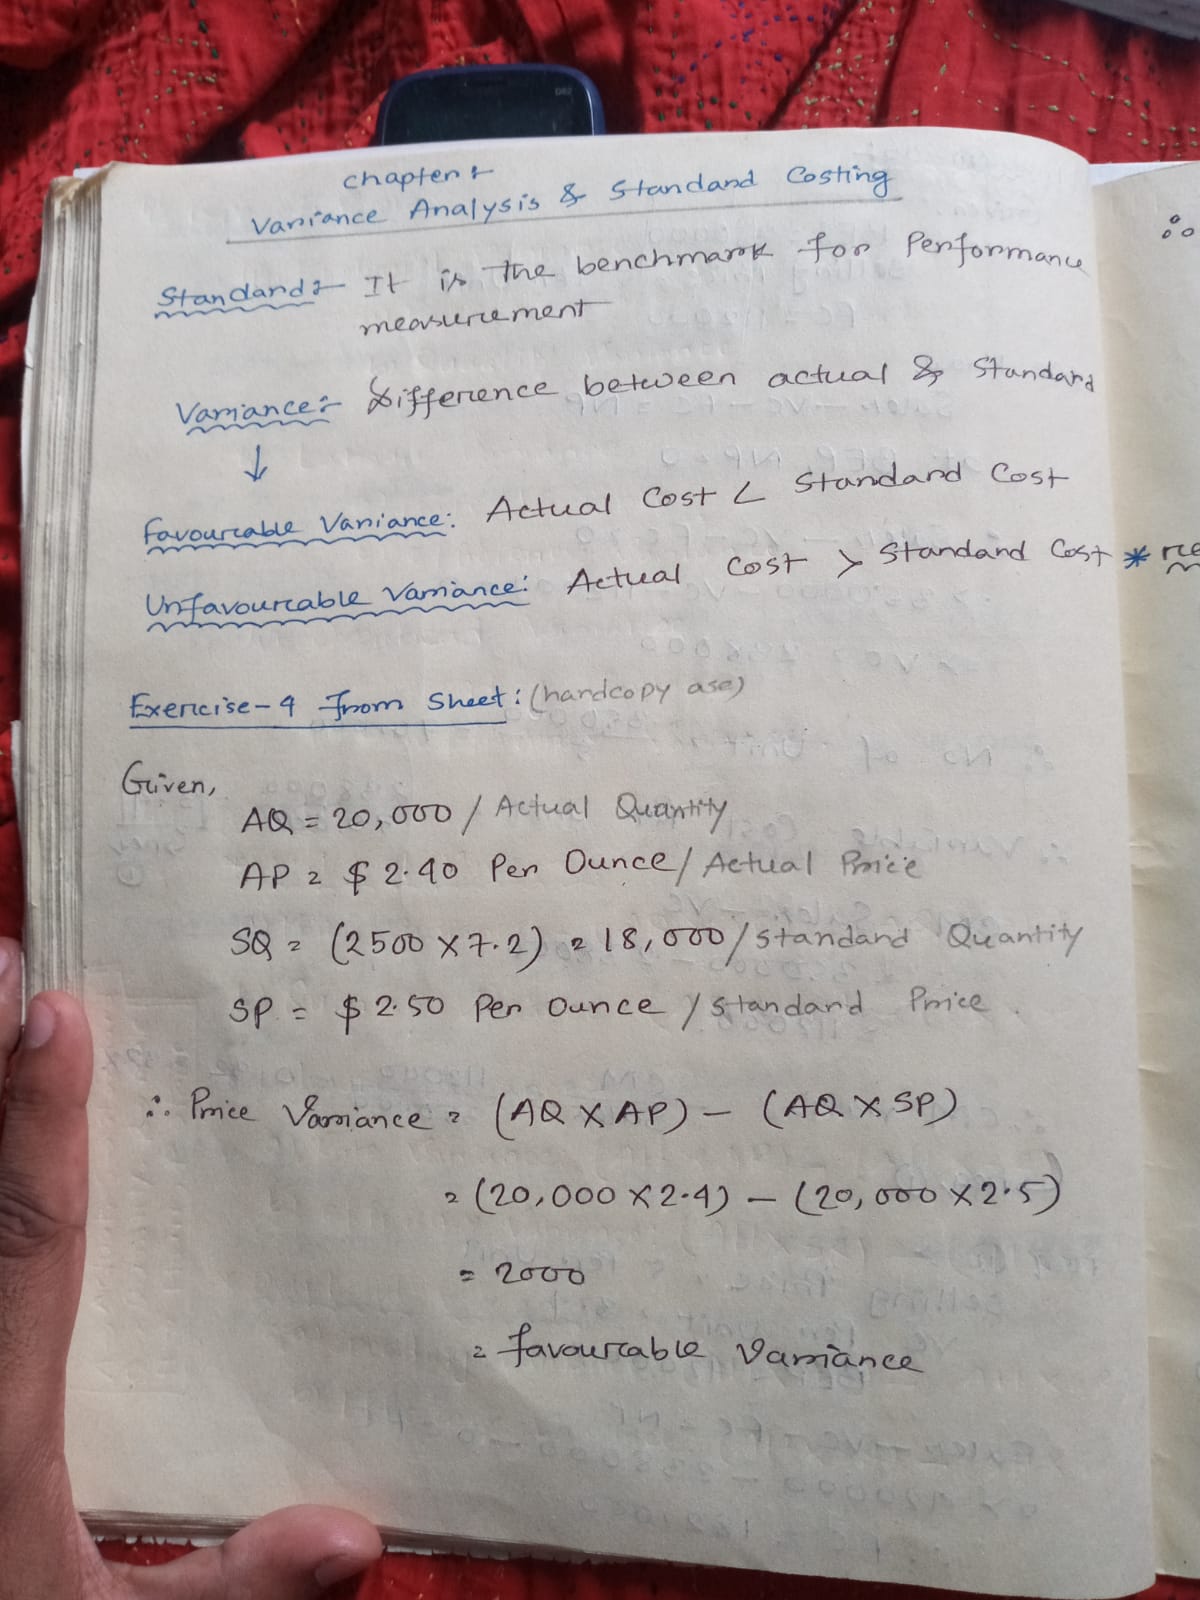 Chapter:
Variance Analysis & Standard Costing
Standard:- It is the benchmark for Performance
measurement
Variance:- Difference between actual & Standard
↓
Favourable Variance: Actual Cost < Standard Cost
Unfavourable Variance: Actual Cost > Standard Cost * re
Exercise-4 From Sheet: (hardcopy ase)
Given,
AQ = 20,000 / Actual Quantity
AP = $ 2.40 Per Ounce / Actual Price
SQ = (2500 X 7.2) = 18,000 / Standard Quantity
SP = $ 2.50 Per Ounce / Standard Price
∴ Price Variance = (AQ X AP) - (AQ X SP)
= (20,000 X 2.4) - (20,000 X 2.5)
= 2000
= favourable Variance